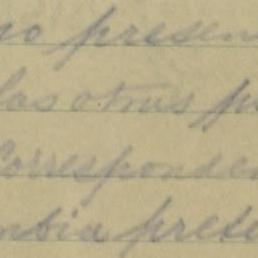 no presen
las otras p
Corresponden
mbia prese